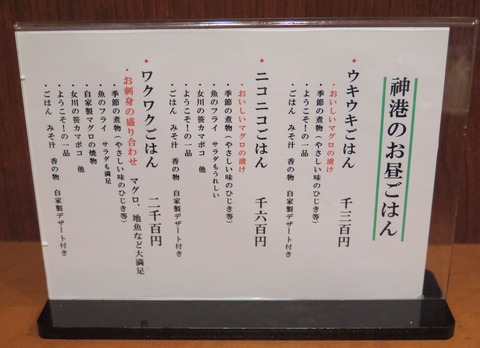 神港のお昼ごはん
・ウキウキごはん 千三百円
・おいしいマグロの漬け
・季節の煮物（やさしい味のひじき等）
・女川の笹カマボコ 他
・ようこそ！の一品
・ごはん みそ汁 香の物 自家製デザート付き
・ニコニコごはん 千六百円
・おいしいマグロの漬け
・季節の煮物（やさしい味のひじき等）
・魚のフライ サラダもうれしい
・女川の笹カマボコ 他
・ようこそ！の一品
・ごはん みそ汁 香の物 自家製デザート付き
・ワクワクごはん 二千百円
・お刺身の盛り合わせ マグロ、地魚など大満足
・季節の煮物（やさしい味のひじき等）
・魚のフライ サラダも満足
・自家製マグロの焼物
・女川の笹カマボコ 他
・ようこそ！の一品
・ごはん みそ汁 香の物 自家製デザート付き